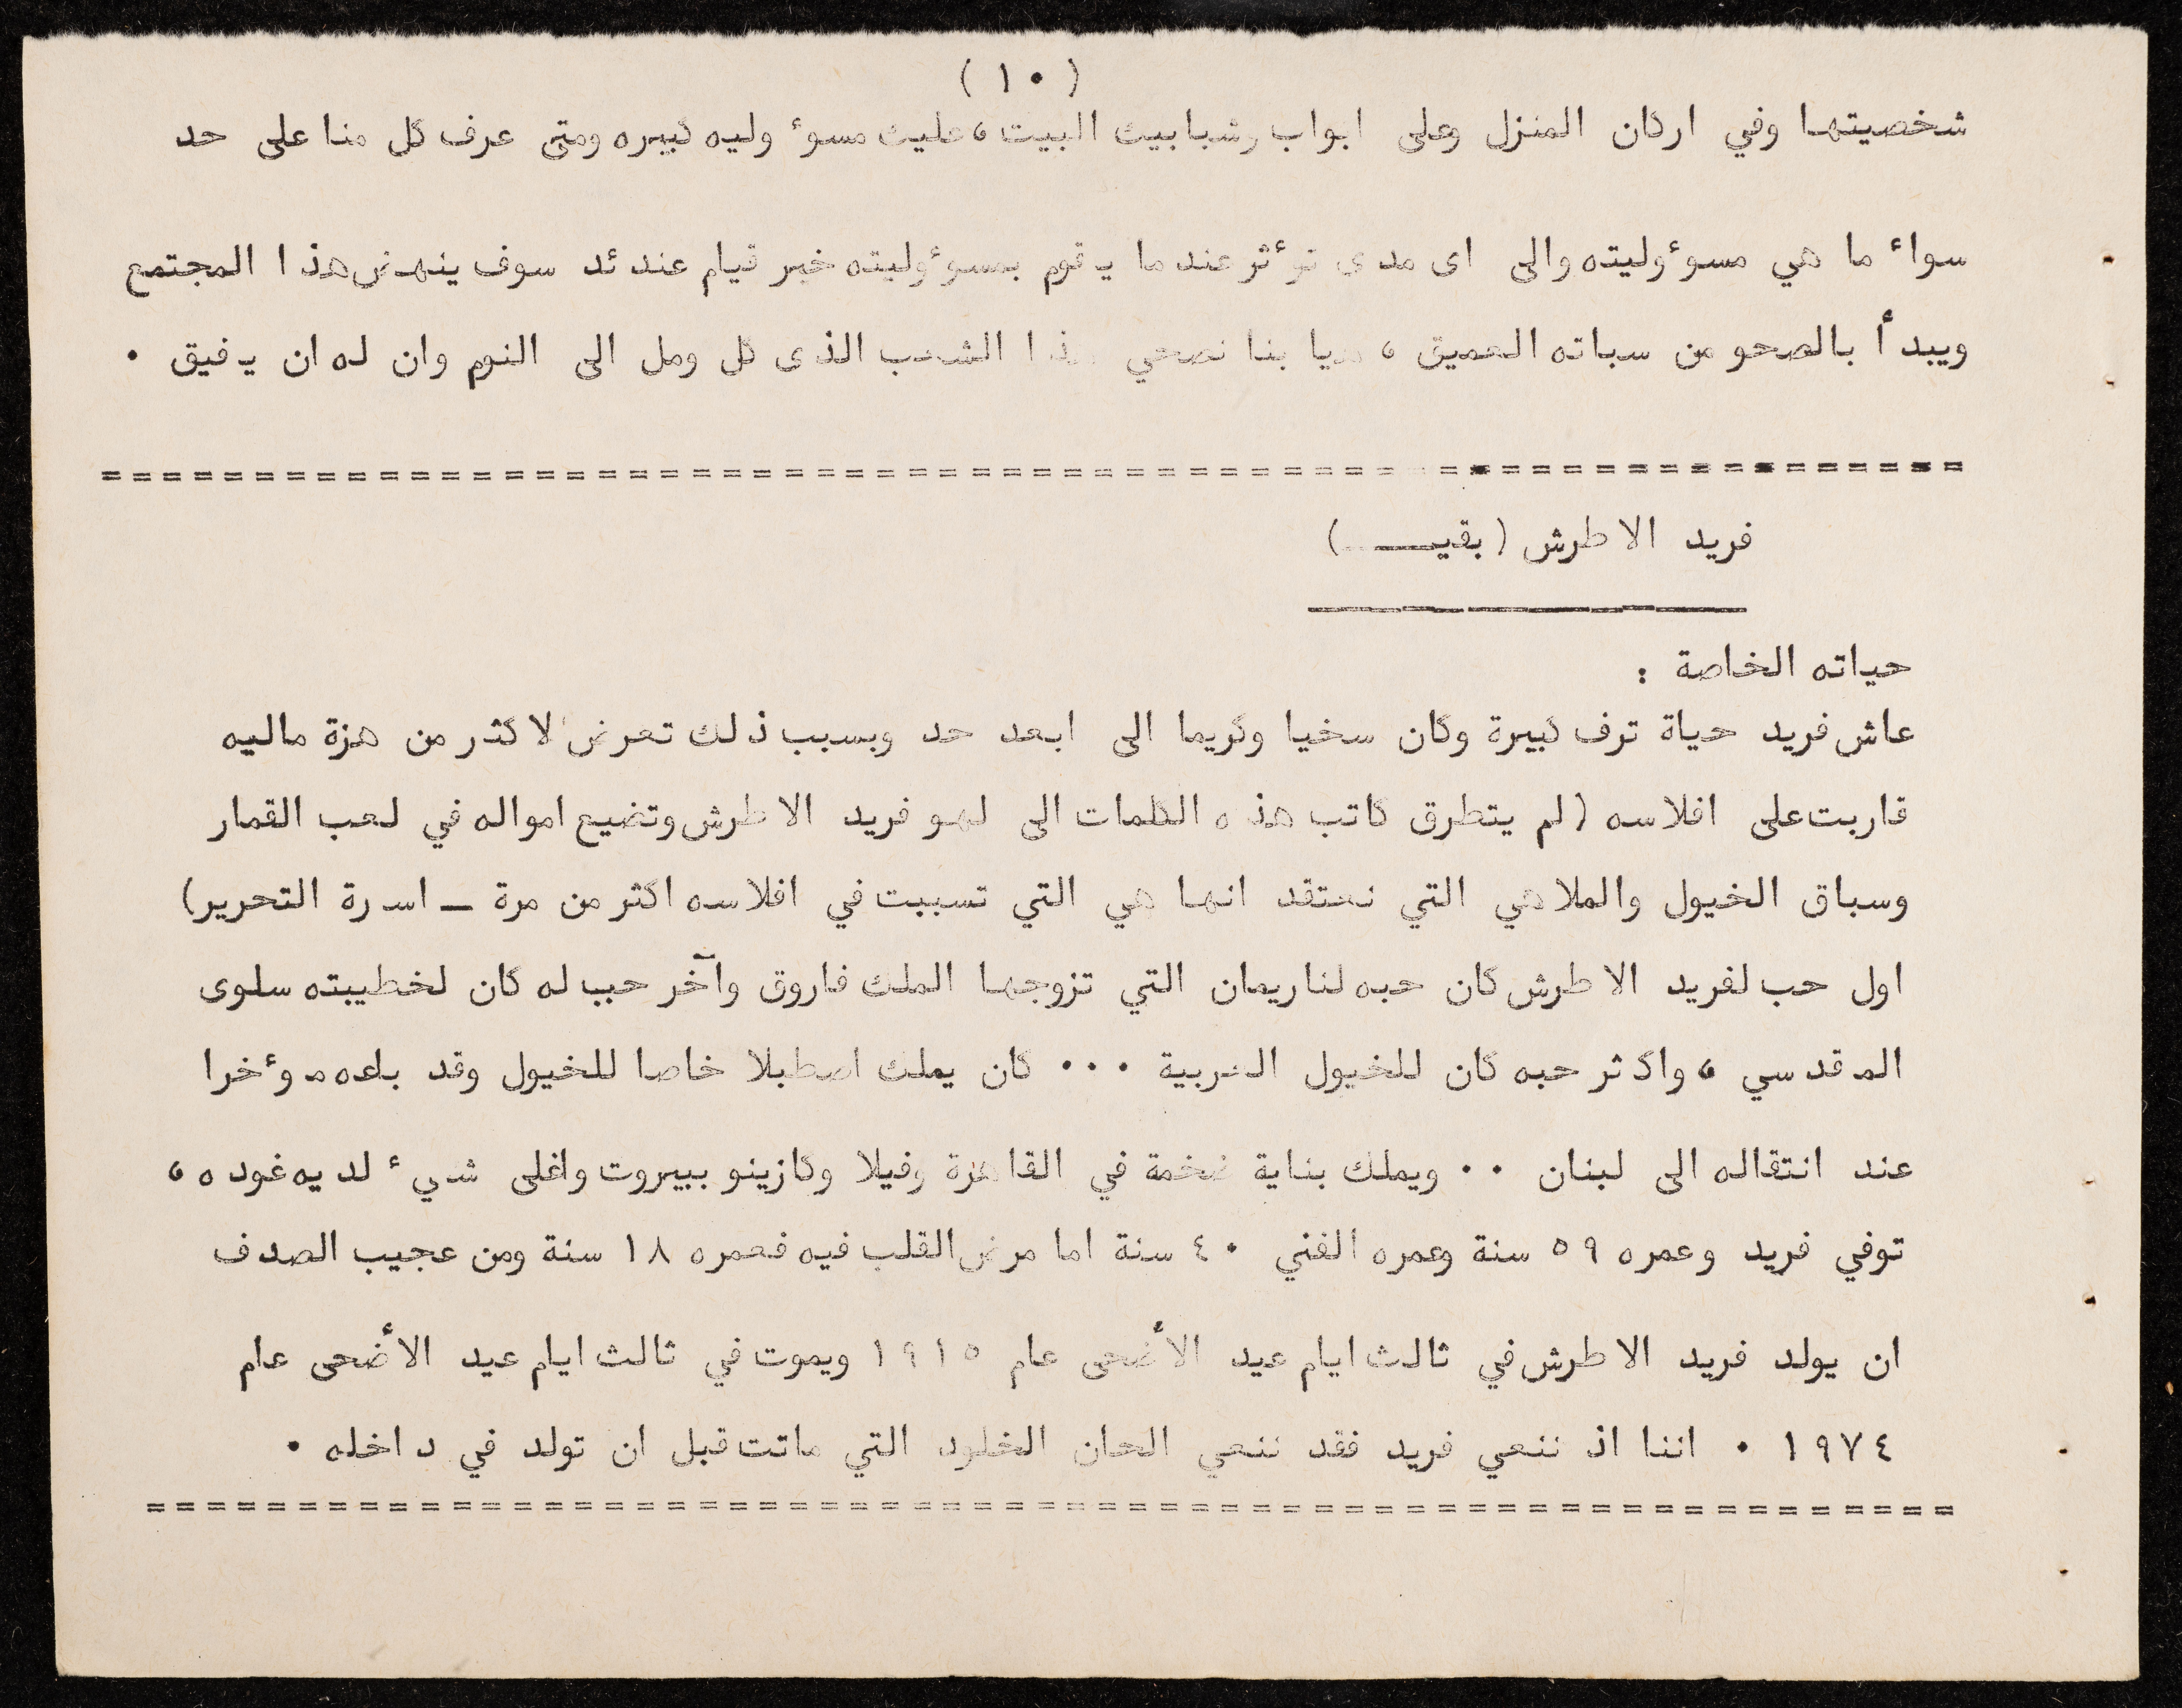 (١٠)
شخصيتها وفي اركان المنزل وعلى ابواب وشبابيك البيت، عليك مسؤوليه كبيره ومتى عرف كل منا على حد
سواء ما هي مسؤوليته والى اى مدى تؤثر عندما يقوم بمسؤوليته خير قيام عندئد سوف ينهض هذا المجتمع
ويبدأ بالصحو من سباته العميق ، هيا بنا نصحي هذا الشعب الذى كل ومل الى النوم وان له ان يفيق .
=============================================================
فريد الاطرش (بقيـــ)
حياته الخاصة :
عاش فريد حياة ترف كبيرة وكان سخيا وكريما الى ابعد حد وبسبب ذلك تعرض لاكثر من هزة ماليه
قاربت على افلاسه (لم يتطرق كاتب هذه الكلمات الى لهو فريد الاطرش وتضيع امواله في لعب القمار
وسباق الخيول والملاهي التي نعتقد انها هي التي تسببت في افلاسه اكثر من مرة ـ اسرة التحرير)
اول حب لفريد الاطرش كان حبه لناريمان التي تزوجها الملك فاروق وآخر حب له كان لخطيبته سلوى
المقدسي ، واكثر حبه كان للخيول العربية ... كان يملك اصطبلا خاصا للخيول وقد باعه مؤخرا
عند انتقاله الى لبنان .. ويملك بناية ضخمة في القاهرة وفيلا وكازينو ببيروت واغلى شيء لديه عوده ،
توفي فريد وعمره ٥٩ سنة وعمره الفني ٤٠ سنة اما مرض القلب فيه فعمره ١٨ سنة ومن عجيب الصدف
ان يولد فريد الاطرش في ثالث ايام عيد الأضحى عام ١٩١٥ ويموت في ثالث ايام عيد الأضحى عام
١٩٧٤ . اننا اذ ننعي فريد فقد ننعي الحان الخلود التي ماتت قبل ان تولد في داخله .
===========================================================